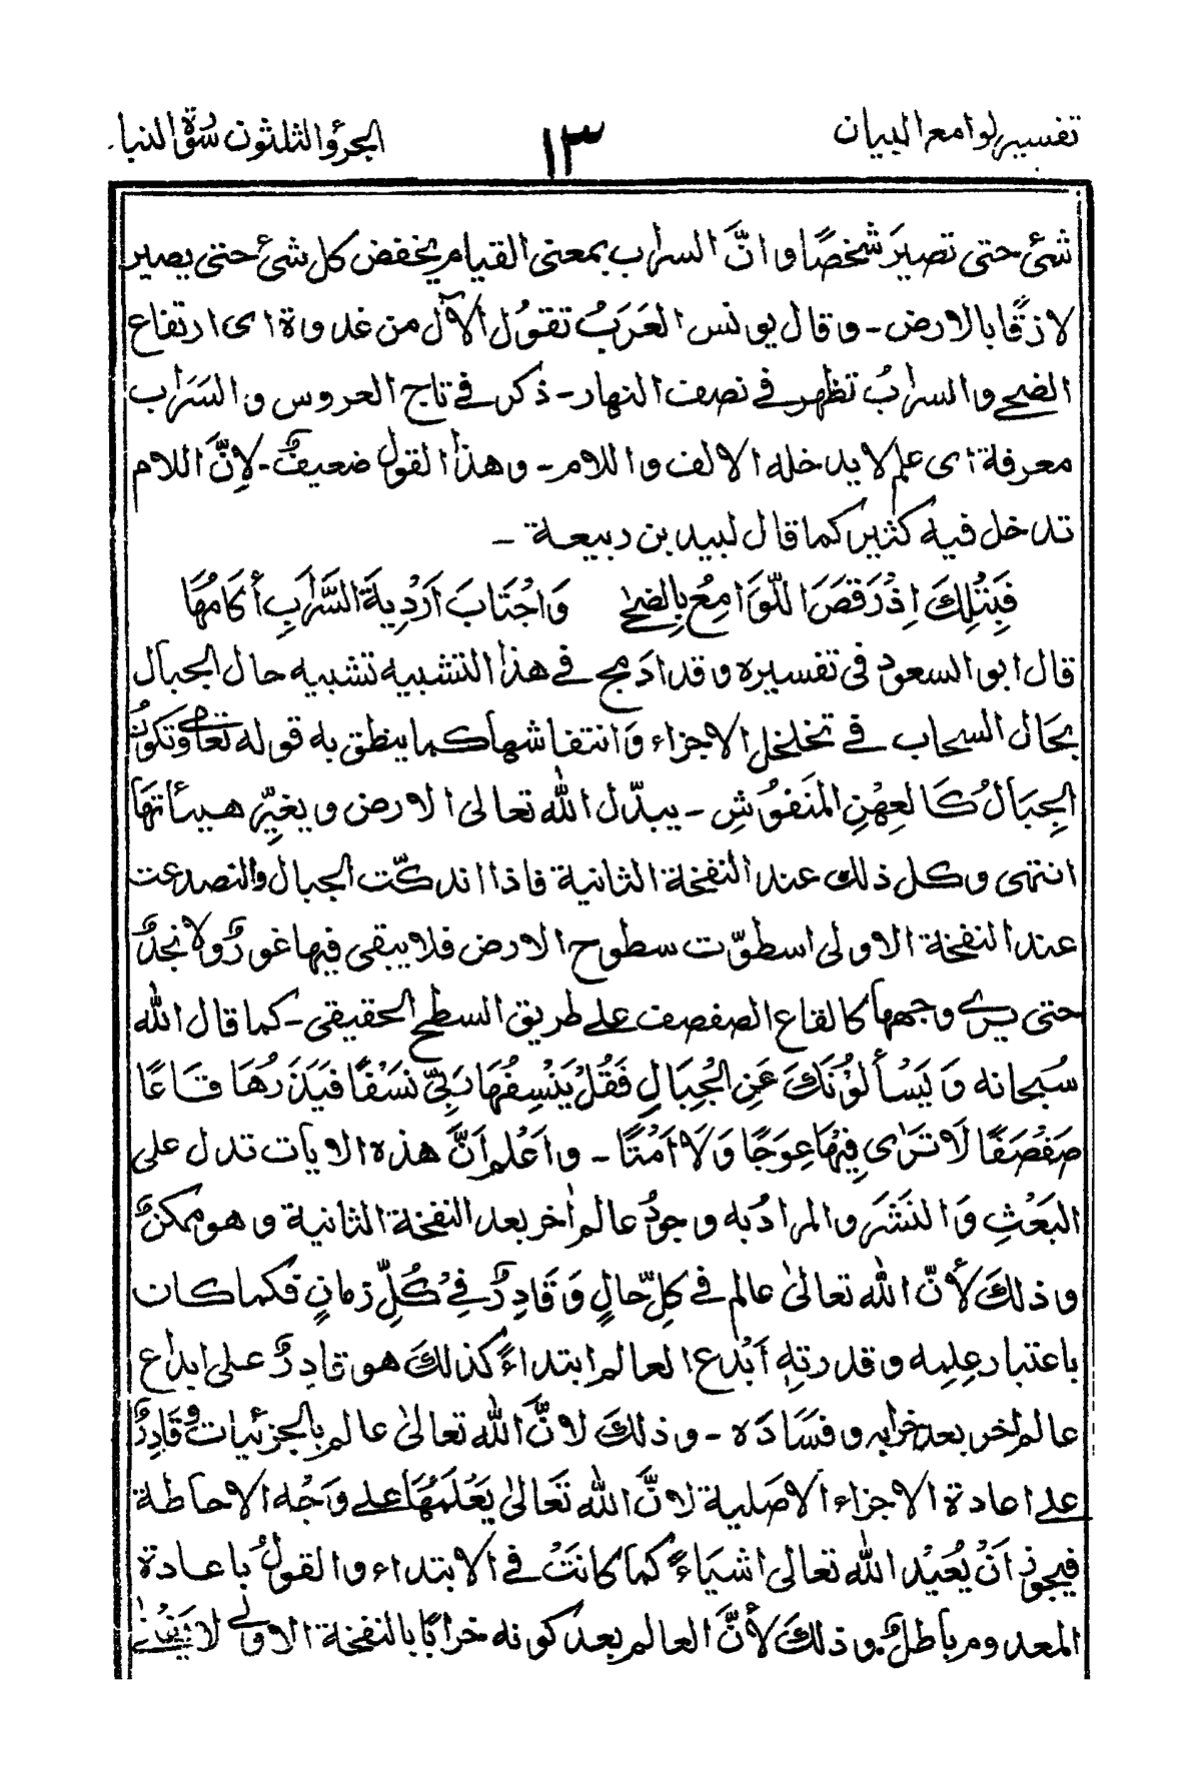 تفسير لوامع البيان
١٣
الجزؤ الثلثون سورة النبا
شئ حتى تصيرَ شخصًا و انَّ السراب بمعنى القيام يخفض كل شئ حتى يصير
لازقًا بالارض - و قال يونس العَرَبُ تقوُل الآل من غدوة اى ارتفاع
الضحے و السرابُ تظهر فے نصف النهار - ذكر فے تاج العروس و السَرَاب
معرفة اى علم لا يدخله الالف و اللام - و هذا القول ضعيفٌ - لِانَّ اللام
تدخل فيه كثير كما قال لبيد بن ربيعة -
فَبَتِلكَ اِذْ رَقَصَ اللّوَامِعُ بِالضحےٰ وَاجْتَابَ اَرْدِيةَ السَّرَابِ أكَامُهَا
قال ابو السعود فى تفسيره و قد ادمج فے هذا التشبيه تشبيه حال الجبال
بحَال السحاب فے تخلخل الاجزاء وَ انتفاشها كما ينطق به قوله تعالى وَتكَونُ
الجِبَالُ كَالعِهْنِ المَنفُوْشِ - يبدّل الله تعالى الارض و يغيّر هيئاتهَا
انتهى و كل ذلك عند النفخة الثانية فاذا اندكّت الجبال والنصدعت
عند النفخة الاولى اسطوّت سطوح الارض فلا يبقى فيها غورٌ ولا نجدٌ
حتى يرے وجهها كالقاع الصفصف علے طريق السطح الحقيقى - كما قال الله
سُبحانه وَ يَسْألوْنَكَ عَنِ الْجِبَالِ فَقُلْ يَنْسِفُهَا رَبِّى نَسْفًا فَيَذَرُهَا قَاعًا
صَفْصَفًا لَا تَرَاى فِيْهَا عِوَجًا وَلَا اَمْتًا - و اَعْلم اَنَّ هذه الايات تدل على
البَعْثِ وَ النَشَر و المرادُ به وجودُ عالم اٰخر بعد النفخة الثانية و هو ممكنٌ
و ذلكَ لأنّ الله تعالىٰ عالم فے كلِّ حَالٍ وَ قَادِرٌ فِے كُلِّ زمانٍ فكما كان
باعتبار عِلِمه و قدرتهٖ اَبْدع العالم ابتداءً كذلكَ هو قادِرٌ على ابداع
عالم اٰخر بعد خرابه و فسَادَه - و ذلكَ لانَّ الله تعالىٰ عالم بالجزئيات وقَادِرٌ
علے اعادة الاجزاء الاصَلية لانَّ الله تَعَالىٰ يَعْلَمُهَا علے وَجْه الاحاطة
فيجوز اَنْ يُعيْد الله تعالى اشيَاءً كما كانَتْ فے الابتداء و القول باعادة
المعدوم باطلٌ و ذلكَ لأنَّ العالم بعد كونه خرابًا بالنفخة الاولے لا يَفْنےٰ